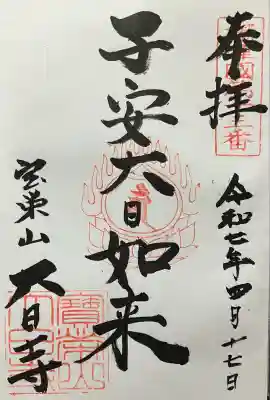 奉拝
子安大日如来
令和七年四月十七日
宝東山
大日寺